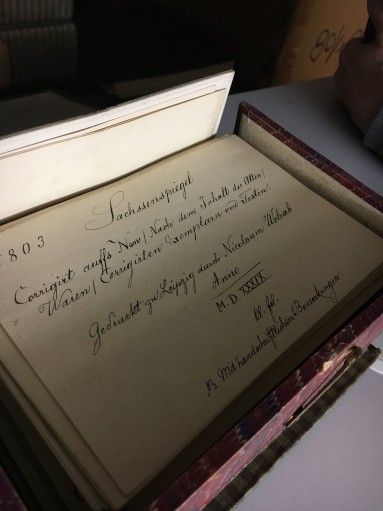 5803
Sachssenspiegel
Corrigirt auffs New / Nach dem Inhalt der Alten /
Waren / Corrigirten Exemplarn und Texten.
Gedruckt zu Leipzig durch Nicolaum Wolrab
Anno
M.D.XXXIX.
kl. fol.
B. Mit handschriftlichen Bemerkungen.